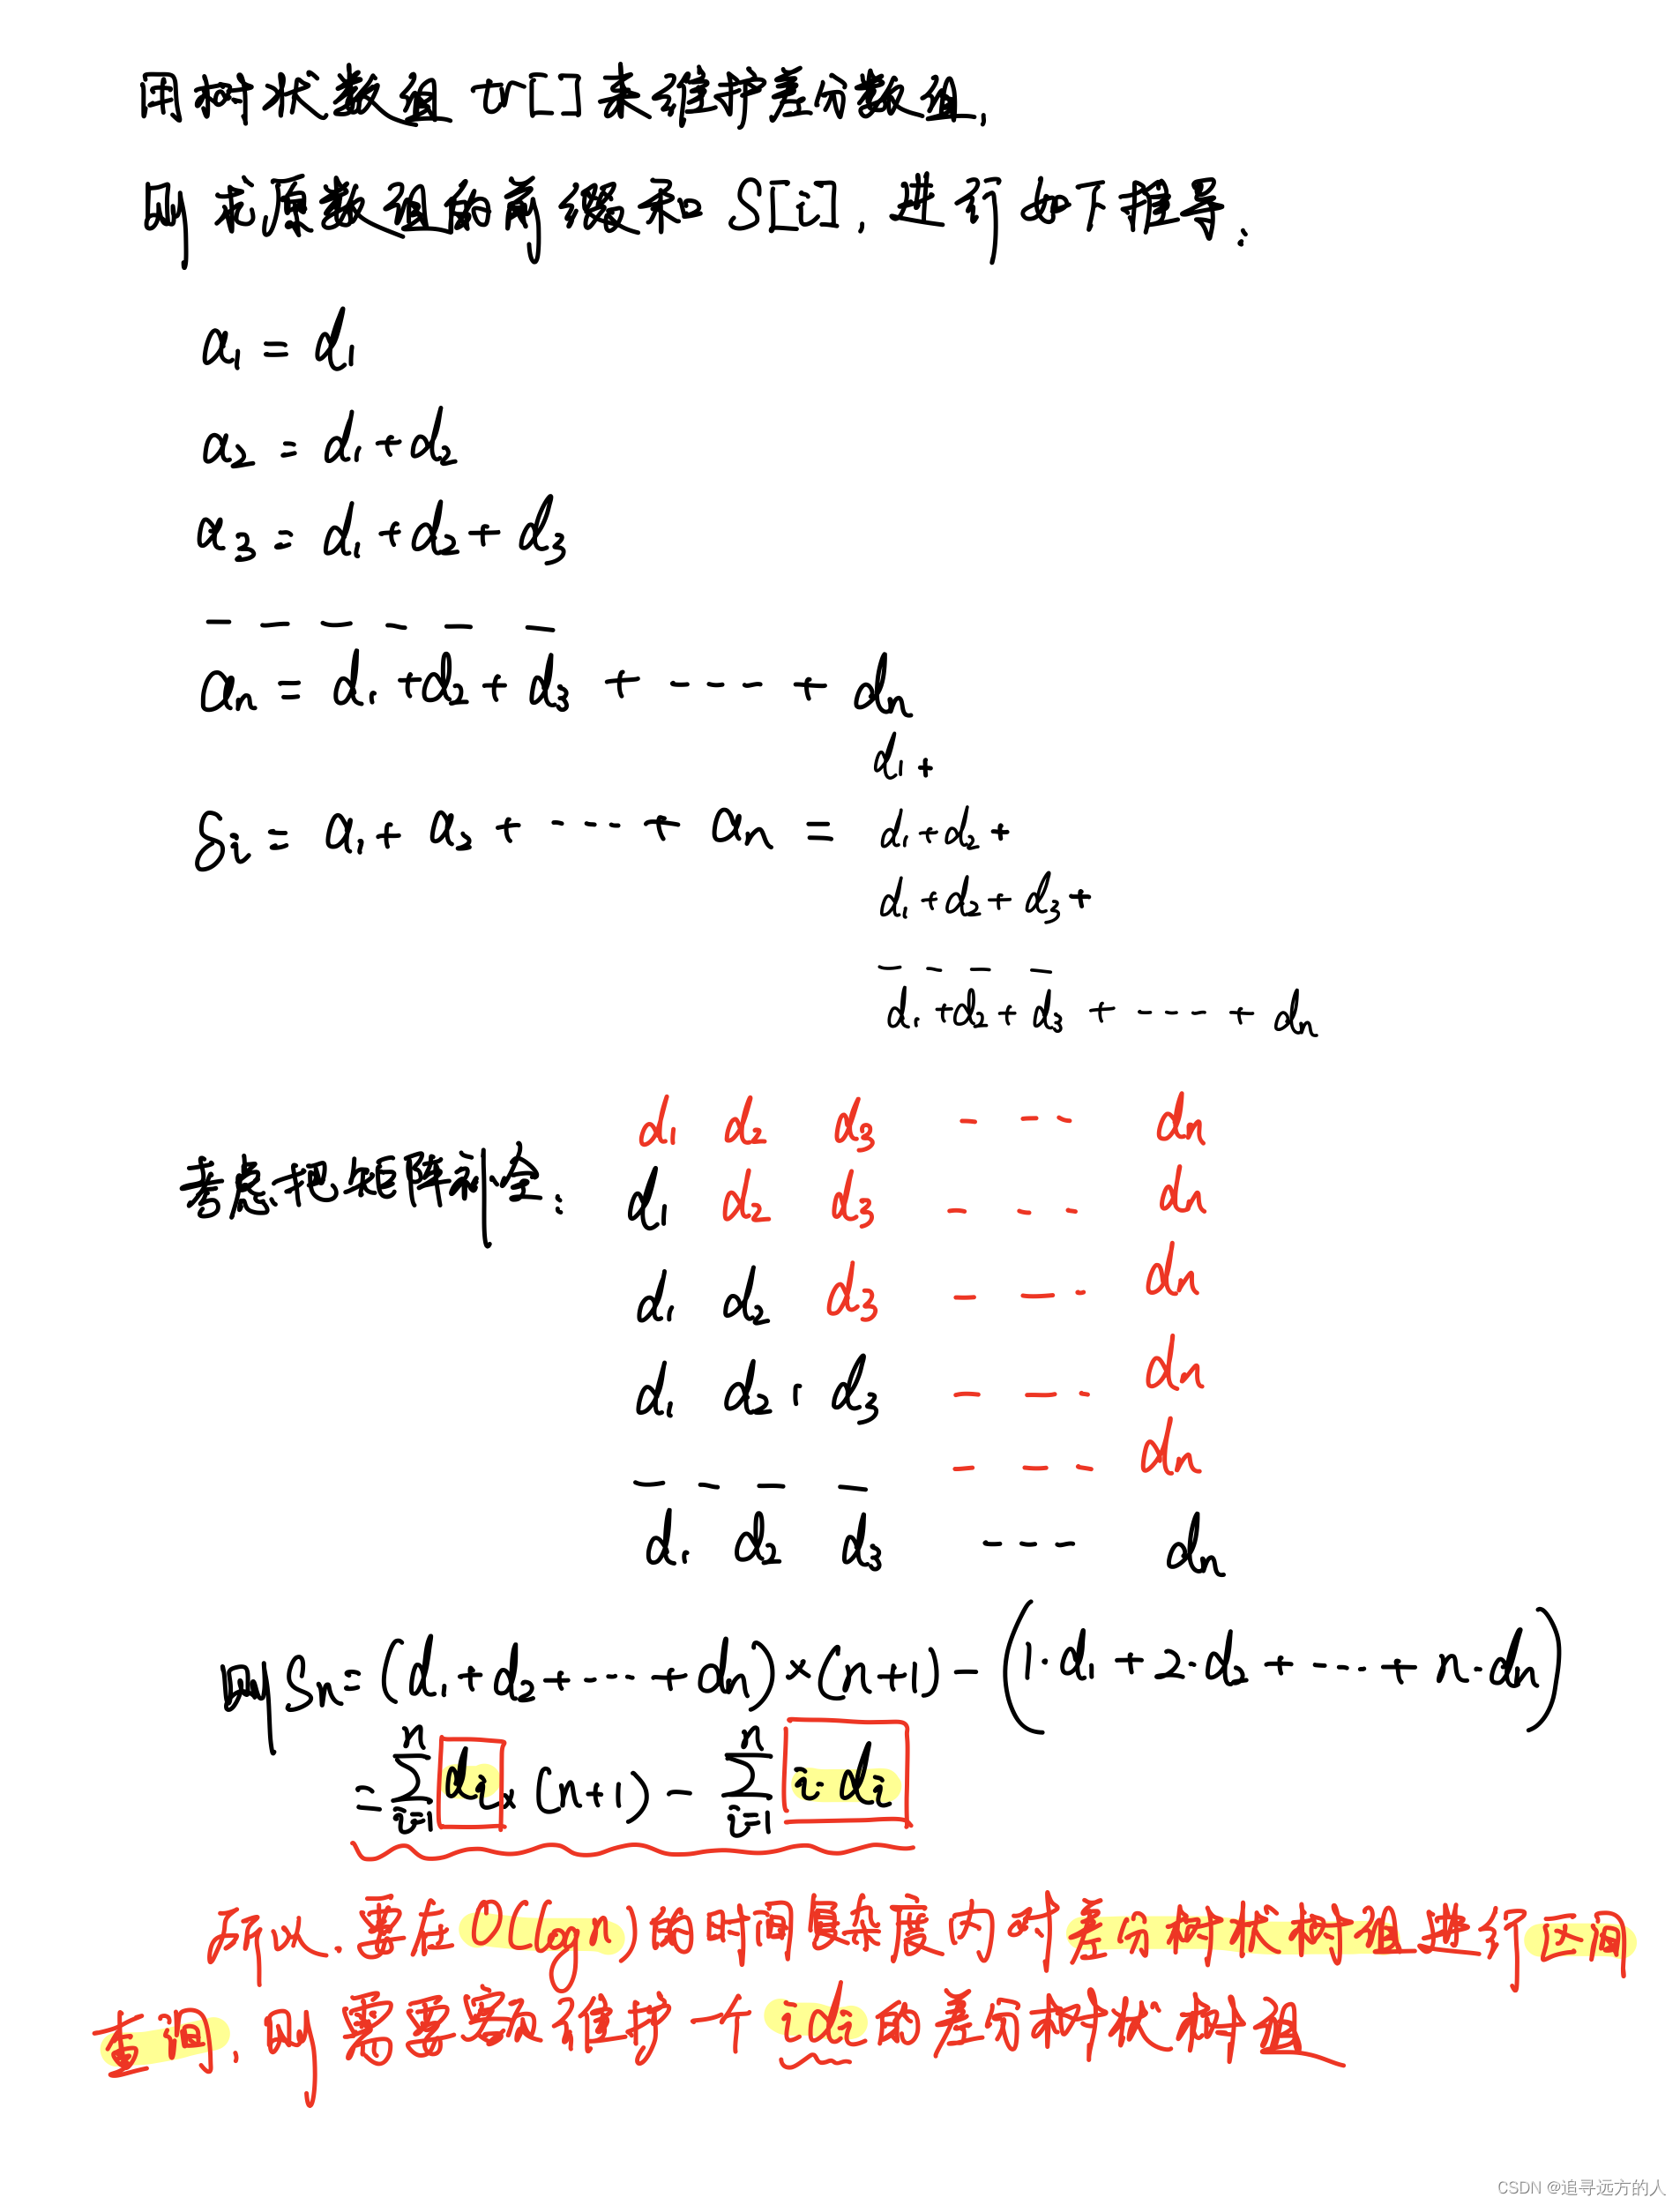 用树状数组 tr[]来维护差分数组,
则 求原数组的前缀和 S[i], 进行如下推导:
a₁ = d₁
a₂ = d₁+d₂
a₃ = d₁+d₂+d₃
- - - - - -
aₙ = d₁+d₂+d₃ + ---- + dₙ
Sᵢ = a₁+ a₂ + ---- + aₙ =
d₁+
d₁+d₂+
d₁+d₂+d₃+
- - - -
d₁+d₂+d₃ + ---- + dₙ
考虑把矩阵补全:
d₁ d₂ d₃ - -- dₙ
d₁ d₂ d₃ - - - dₙ
d₁ d₂ d₃ - - - dₙ
d₁ d₂ d₃ - - - dₙ
- - - - - - - dₙ
d₁ d₂ d₃ --- dₙ
则 Sₙ= (d₁+d₂+----+dₙ)×(n+1) - (1·d₁ + 2·d₂ + ---- + n·dₙ)
= ∑ⁿᵢ₌₁ dᵢ × (n+1) - ∑ⁿᵢ₌₁ i·dᵢ
所以, 要在 O(logn)的时间复杂度内对差分树状树组进行区间
查询, 则需要额维护一个 idᵢ 的差分树状树组
CSDN @追寻远方的人